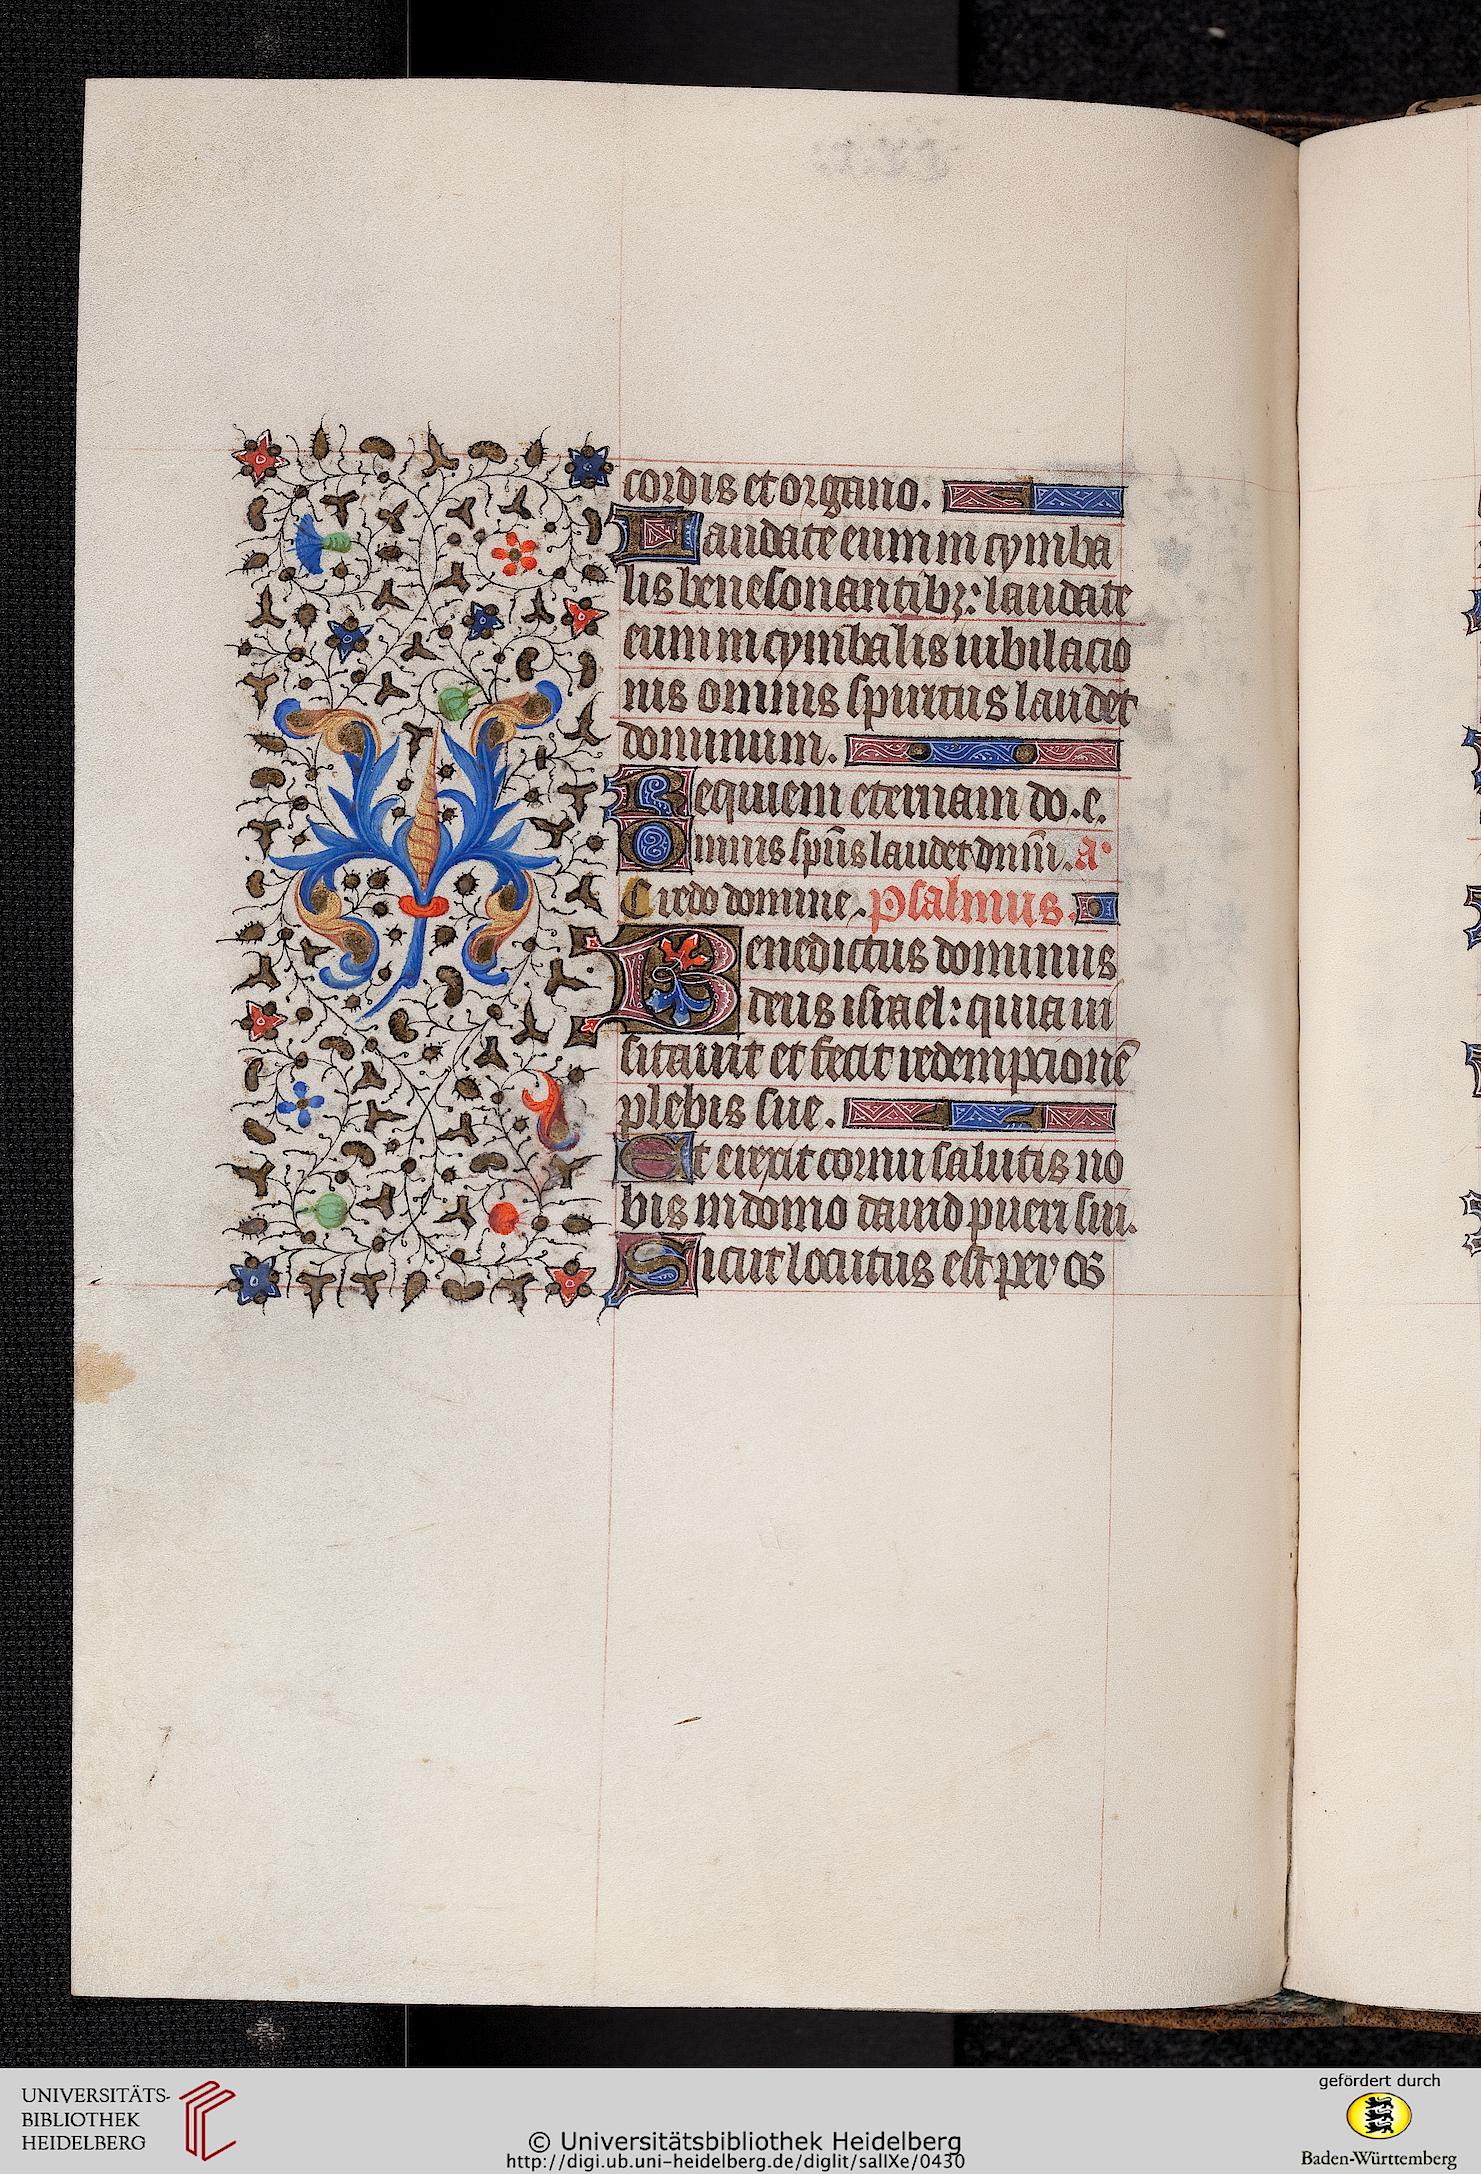 cordis et organo.
Laudate eum in cymba
lis bene sonantibꝫ: laudate
eum in cymbalis iubilacio
nis omnis spiritus laudet
dominum.
Requiem eternam do. e.
Omnis sp̅us laudet dn̅m. a
Credo domine. psalmus.
Benedictus dominus
deus israel: quia ui
sitauit et fecit redempcione̅
plebis sue.
Et erexit cornu salutis no
bis in domo dauid pueri sui.
Sicut locutus est per os
UNIVERSITÄTS-
BIBLIOTHEK
HEIDELBERG
© Universitätsbibliothek Heidelberg
http://digi.ub.uni-heidelberg.de/diglit/salIXe/0430
gefördert durch
Baden-Württemberg